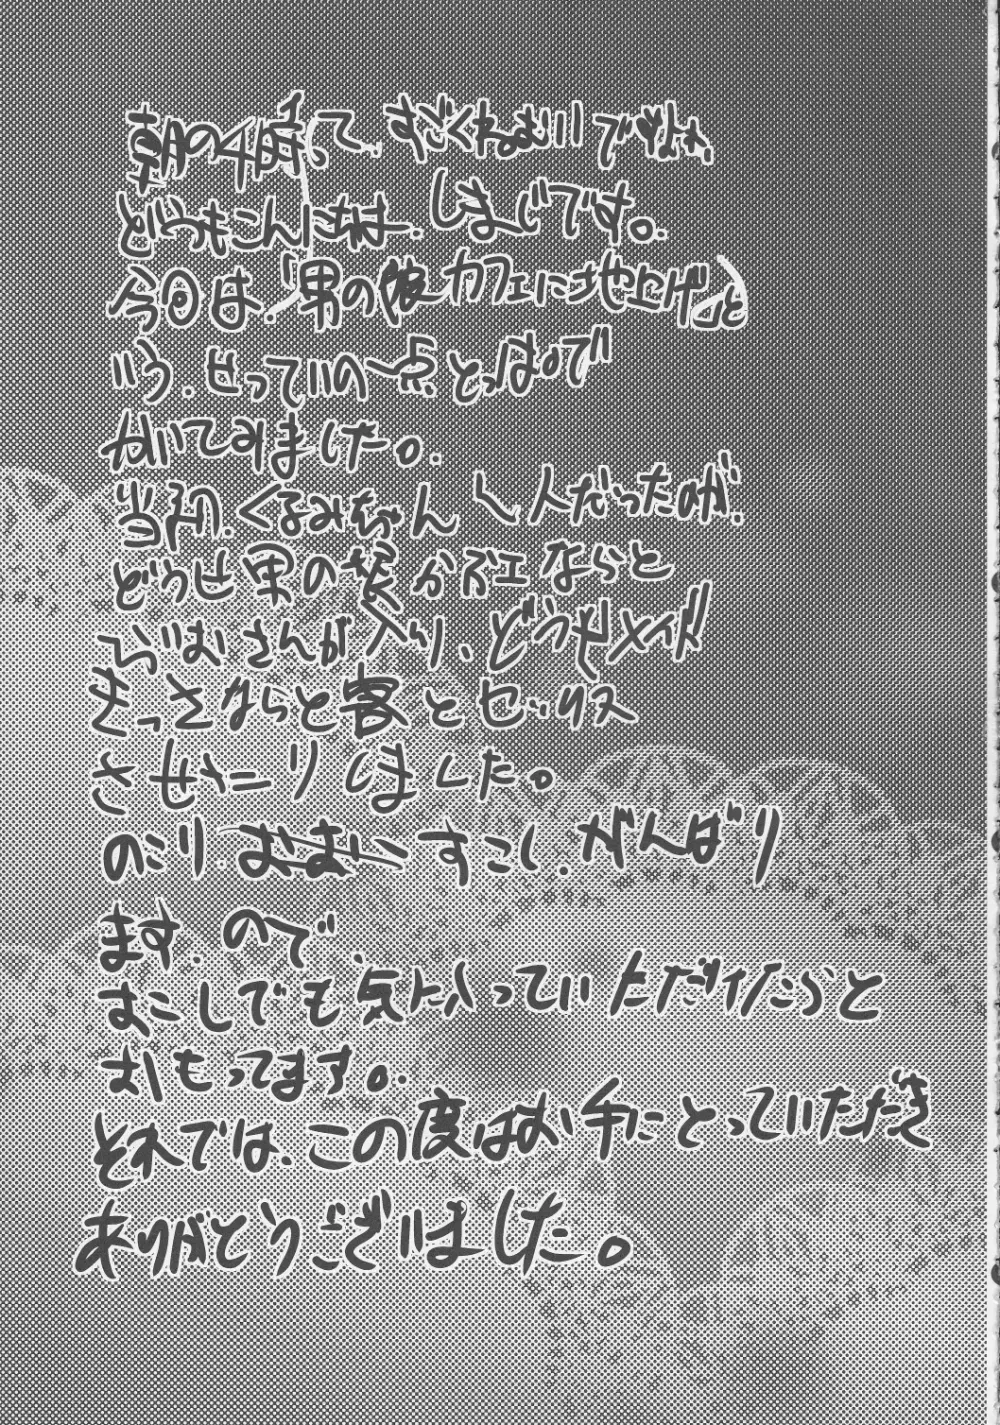 朝の4時って、すごくねむいですよね、
どうもこんにちは、しまじです。
今回は、「男の娘カフェに地上げ」と
いう、せっていの一点とっぱで
かいてみました。
当初、くるみちゃん1人だったのが、
どうせ男の娘かふぇならと
ふじおさんが入り、どうせメイド
きっさならと客とセックス
させたりしました。
のこり、すこし、がんばり
ます、ので、
すこしでも気に入っていただけたらと
おもってます。
それでは、この度はお手にとっていただき
ありがとうございました。